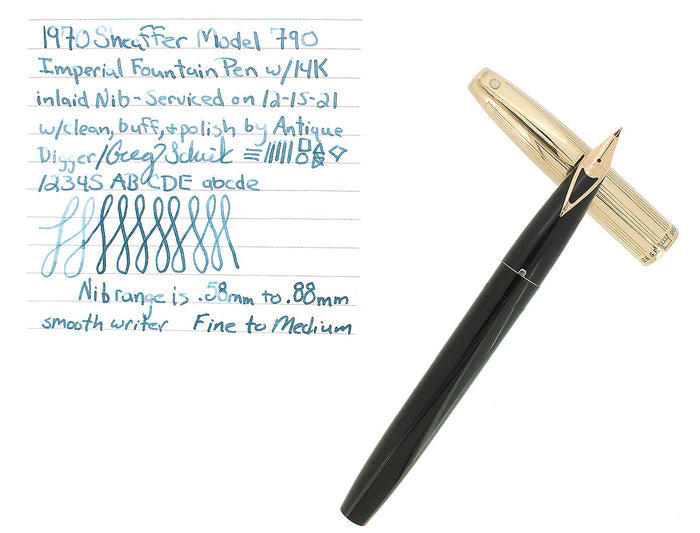 1970 Sheaffer Model 790
Imperial Fountain Pen w/14K
inlaid Nib-Serviced on 12-15-21
w/clean, buff, & polish by Antique
Digger/Greg Schick
12345 ABCDE abcde
Nib range is .58mm to .88mm
smooth writer Fine to Medium